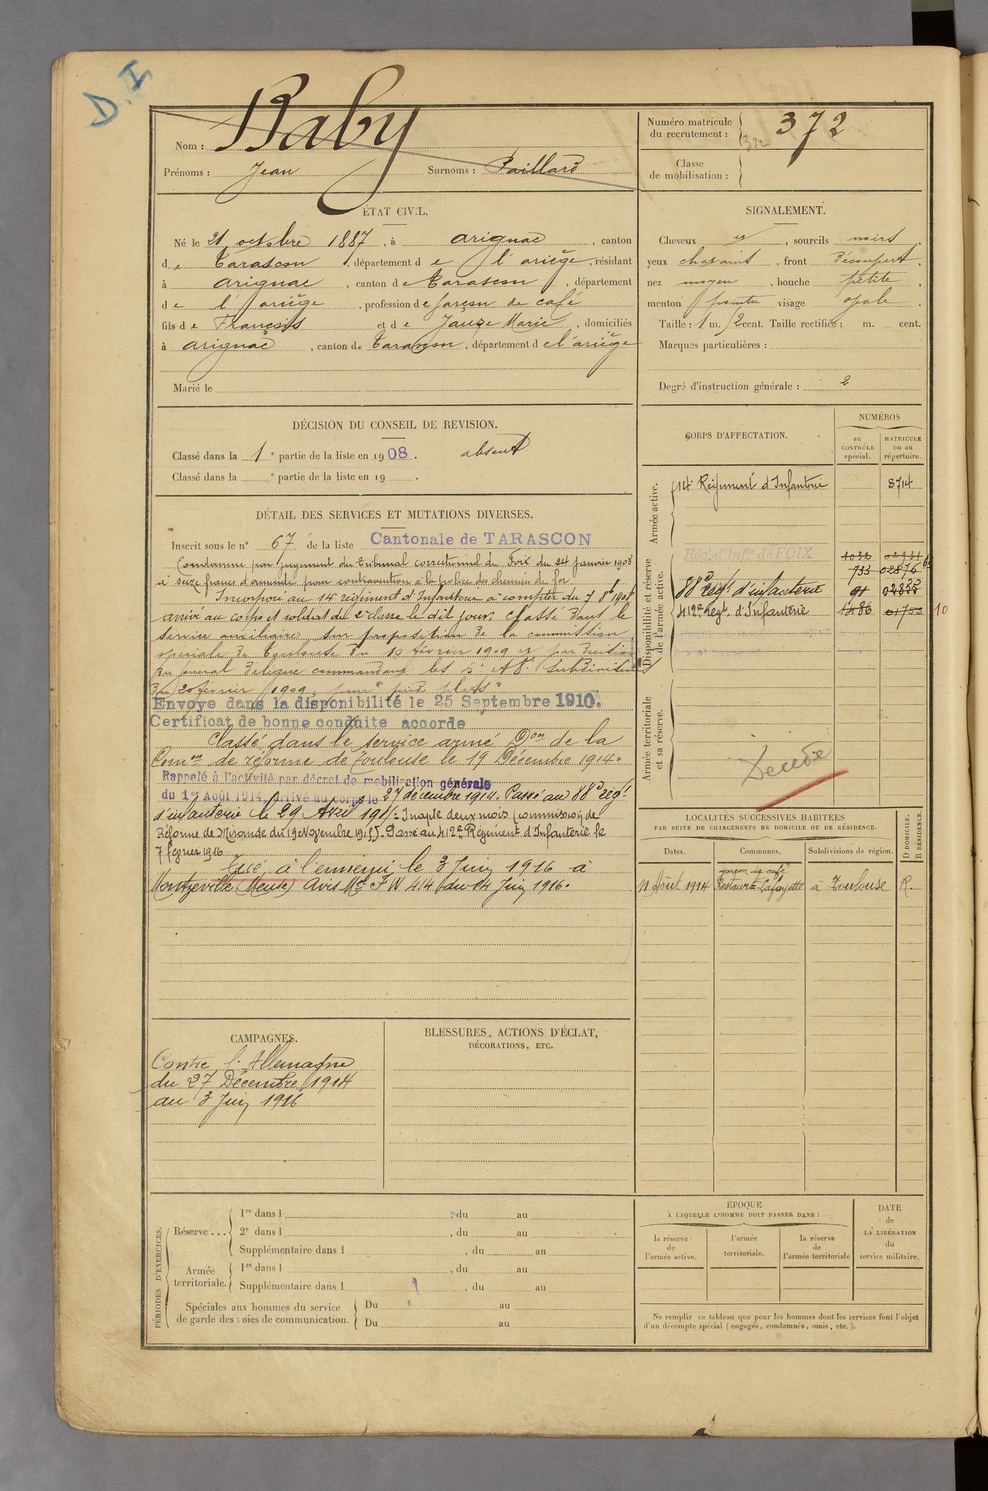 D. I
Nom : Baby
Prénoms : Jean Surnoms : Paillard
Numéro matricule
du recrutement : 372
372
Classe
de mobilisation :
ÉTAT CIVIL.
Né le 21 octobre 1887, à Arignac, canton
de Tarascon, département de l'Ariège, résidant
à Arignac, canton de Tarascon, département
de l'Ariège, profession de garçon de café
fils de François et de Jauze Marie, domiciliés
à Arignac, canton de Tarascon, département de l'Ariège
Marié le
SIGNALEMENT.
Cheveux et, sourcils noirs
yeux chatains, front découvert,
nez moyen, bouche petite,
menton pointu visage ovale
Taille : 1 m. 72 cent. Taille rectifiée : m. cent.
Marques particulières :
Degré d'instruction générale : 2
DÉCISION DU CONSEIL DE REVISION.
Classé dans la 1e partie de la liste en 1908. absent
Classé dans la e partie de la liste en 19 .
DÉTAIL DES SERVICES ET MUTATIONS DIVERSES.
Inscrit sous le n° 67 de la liste Cantonale de TARASCON
Condamné par jugement du Tribunal correctionnel de Foix du 24 janvier 1908
à seize francs d'amende pour contravention à la police des chemins de fer
Incorporé au 14 régiment d'Infanterie à compter du 7 8bre 1908
arrivé au corps et soldat de 2e classe le dit jour. Classé dans le
service auxiliaire sur proposition de la commission
spéciale de Toulouse du 10 février 1909 et par décision
du général délégué commandant les subdivisions
du 20 février 1909, pour "pieds plats"
Envoyé dans la disponibilité le 25 Septembre 1910.
Certificat de bonne conduite accordé
Classé dans le service armé Don de la
Comon de réforme de Toulouse le 19 Décembre 1914.
Rappelé à l'activité par décret de mobilisation générale
du 1er Août 1914, arrivé au corps le 27 décembre 1914. Passé au 88e régt
d'infanterie le 29 Avril 1915. Inapte deux mois (commission de
Réforme de Mirande du 19 Novembre 1915). Passé au 412e Régiment d'Infanterie le
7 février 1916
Tué à l'ennemi le 3 Juin 1916 à
Montzéville (Meuse) Avis Mel F W 414 du 14 Juin 1916.
CORPS D'AFFECTATION.
NUMÉROS
AU
CONTRÔLE
spécial.
MATRICULE
ou au
répertoire.
Armée active.
14 Régiment d'Infanterie 8714
Disponibilité et réserve
de l'armée active.
Régt d'Infie de FOIX 1032
733 02876
88e Régt d'infanterie 91
412e Régt d'Infanterie 1486 01702
10
Armée territoriale
et sa réserve.
Décédé
LOCALITÉS SUCCESSIVES HABITÉES
PAR SUITE DE CHANGEMENTS DE DOMICILE OU DE RÉSIDENCE.
Dates. Communes. Subdivisions de région. D. DOMICILE. R. RÉSIDENCE.
garçon de café
11 Août 1914 Restaurt Lafayette à Toulouse R.
CAMPAGNES.
Contre l'Allemagne
du 27 Décembre 1914
au 3 Juin 1916
BLESSURES, ACTIONS D'ÉCLAT,
DÉCORATIONS, ETC.
PÉRIODES D'EXERCICES.
Réserve...
1re dans l , du au
2e dans l , du au
Supplémentaire dans l , du au
Armée
territoriale.
1re dans l , du au
Supplémentaire dans l , du au
Spéciales aux hommes du service
de garde des voies de communication.
Du au
Du au
ÉPOQUE
À LAQUELLE L'HOMME DOIT PASSER DANS :
la réserve
de
l'armée active.
l'armée
territoriale.
la réserve
de
l'armée territoriale
DATE
de
LA LIBÉRATION
du
service militaire.
Ne remplir ce tableau que pour les hommes dont les services font l'objet
d'un décompte spécial (engagés, condamnés, omis, etc.).